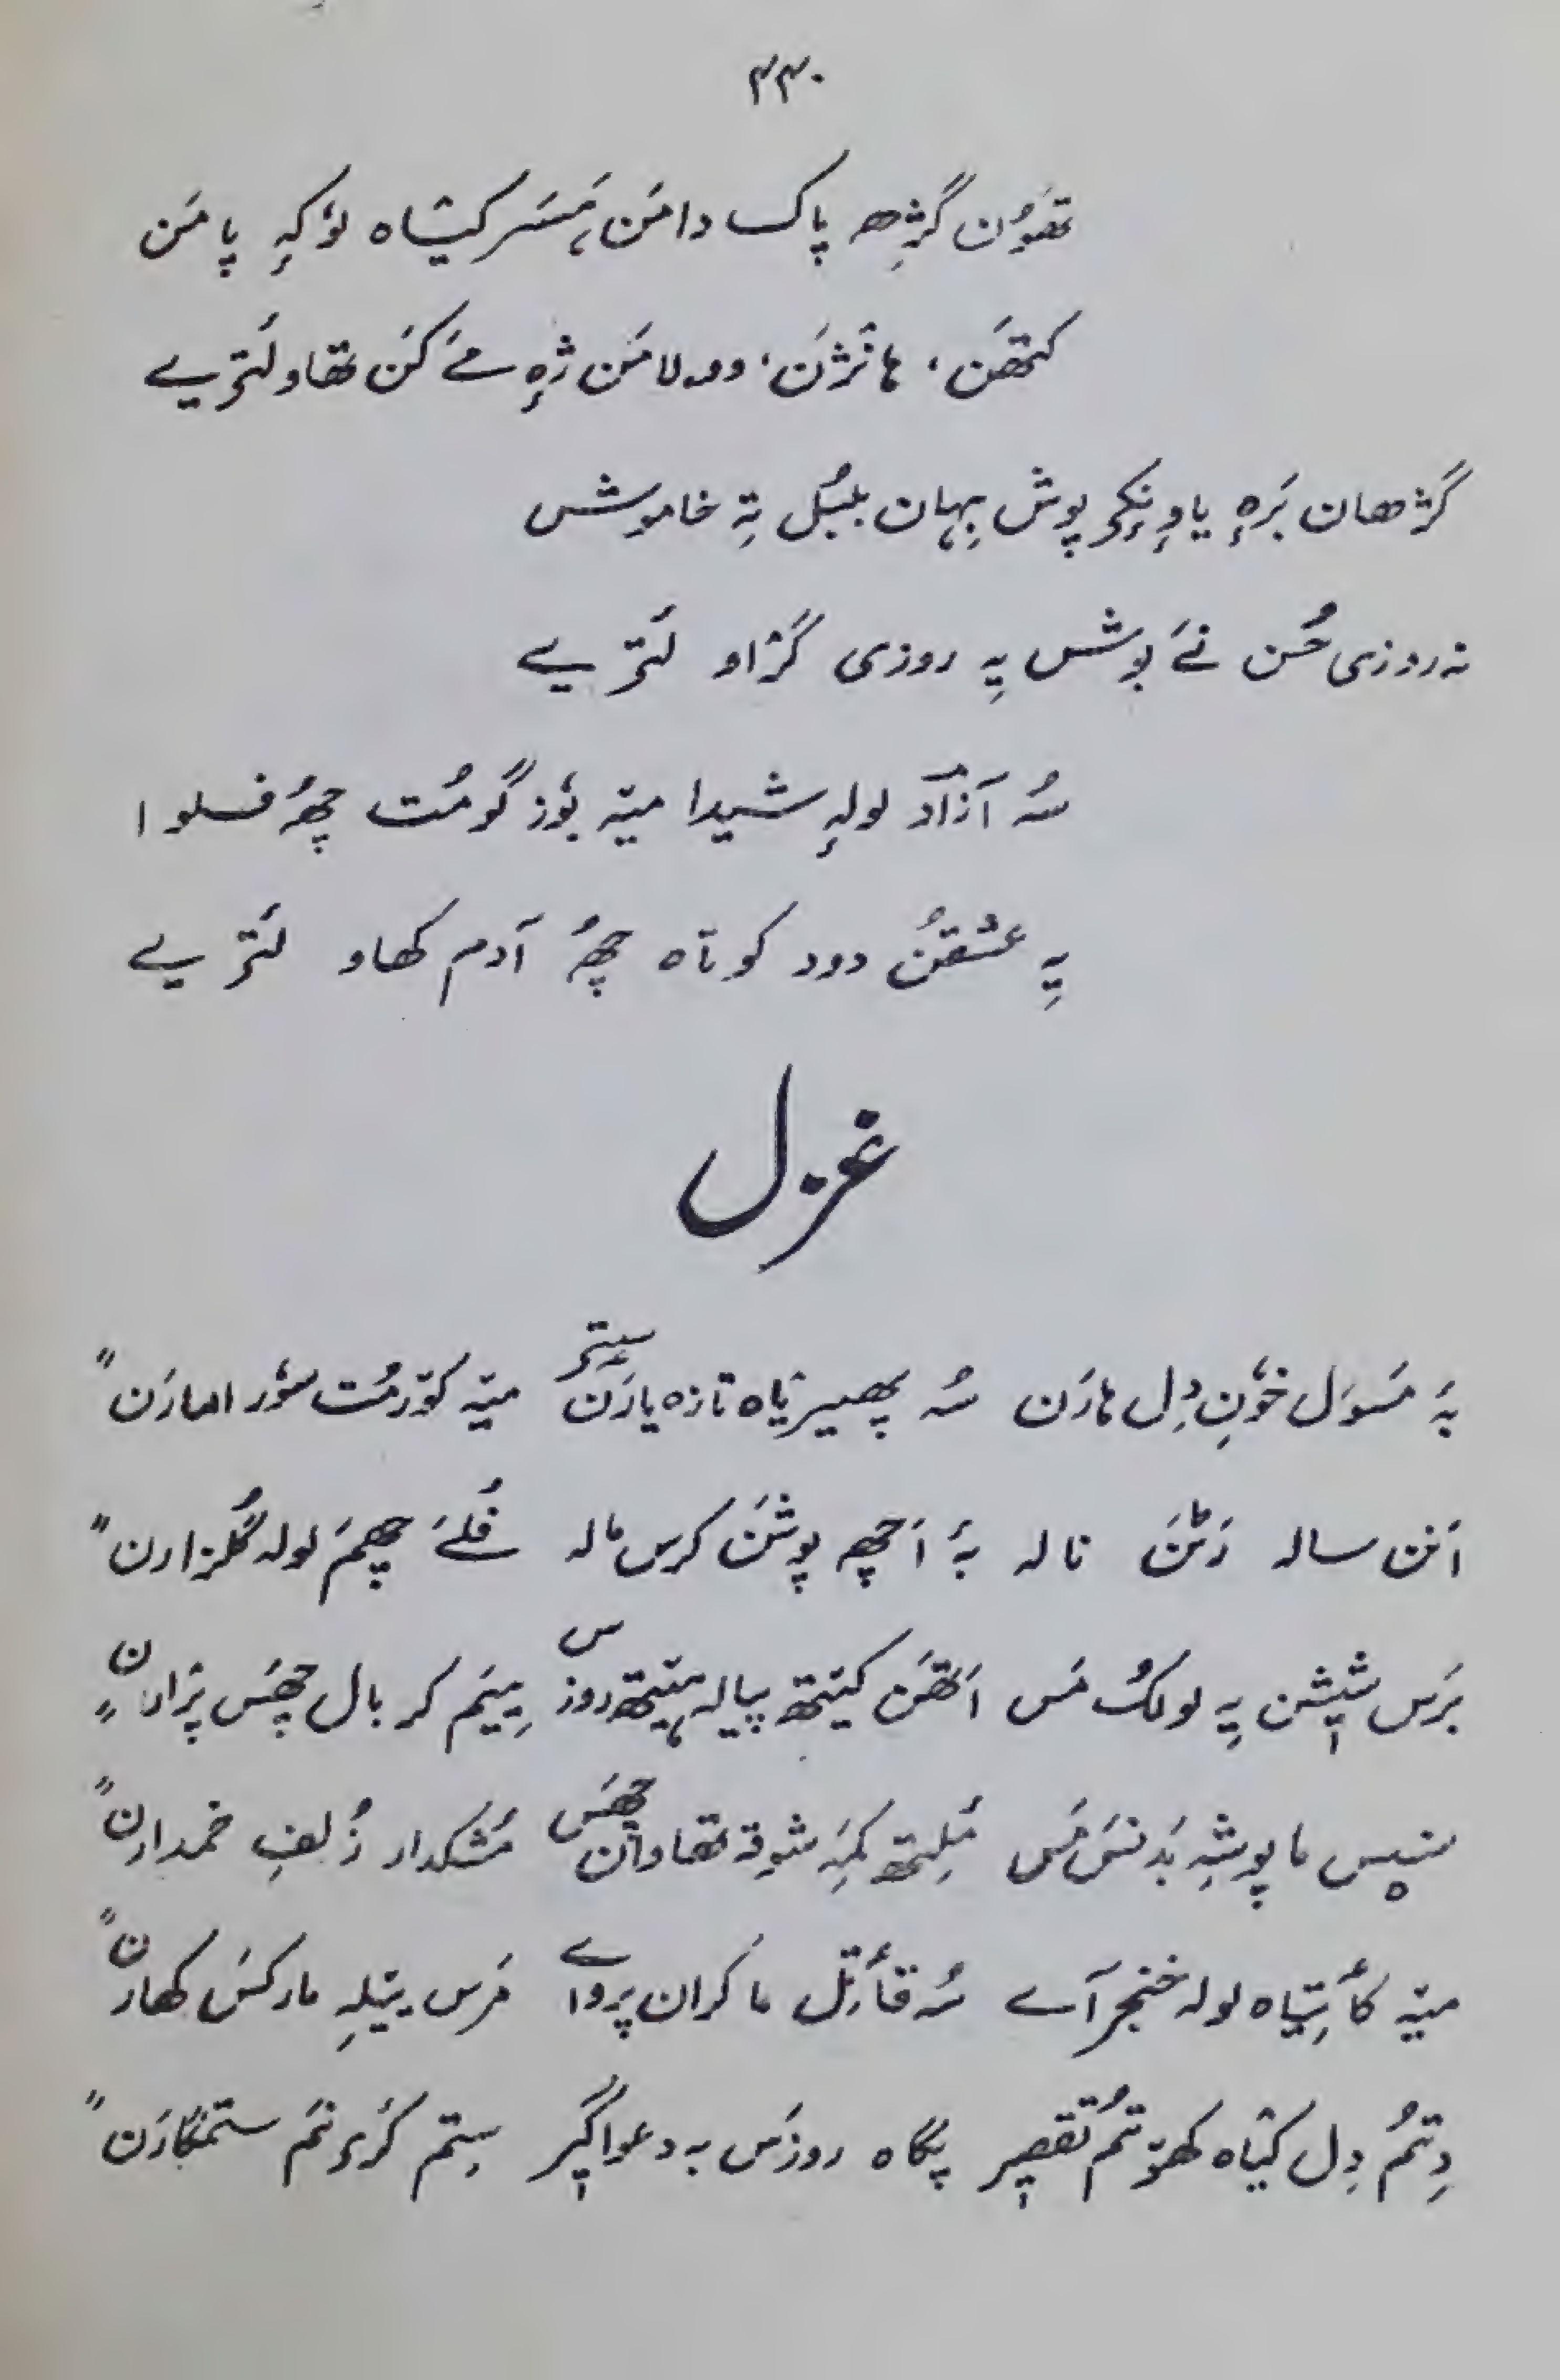 ۴۴۰
تھوٚن گژھِ پاک دامَن، ہَسَر کیٛشاہ لوٗکہٕ پامَن
کتھَن، ہانٛژَن، وولامَن ژٕہ مےٚ کَن تھاو لَتیٖیے
گژھان برٕہ یاوٕنٕکۍ پوش بہان بلبُل تہٕ خاموش
نہ روزی حُسن نَے بوش یہِ روزی گَژاو لَتیٖیے
سُہ آزاد لولہٕ شیدا میٚہ بوٗز گومُت چھُ فسلوا
یہِ عشقُن دود کوتاہ چھُ آدم کھاو لَتیٖیے
غزل
پہَ مَسوَل خوٗنِ دِل ہارَن سُہ پھیریاہ تازہ یارَن سٟتۍ میٚہ کوٚرمُت سوٗر امارَن "
اَنن سالہ رَٹَن نالہ بہٕ اَچھِ پوشَن کرس مالہ فُلَے چھَم لولہ گُلزارن "
بَرَس شیٖشن یہِ لولُک مَس اَتھَن کیٚتھ پیالہ ہیٚتھ روزس یِیَم کر بال چھَس پرٛارن "
سیٖس ما پوشہِ بَدنَس مَس مُلِتھ کَمہِ شوقہ تھاوان چھَس مُشکدار زُلفِ خمدارن "
میٚہ کٲتیاہ لولہ خنجر آے سُہ قٲتِل ما کران پروائے مَرَس یَتلہِ مارکَس کھارن "
دِتُم دِل کیٛاہ کھوٚتُم تقصیٖر پگاہ روزَس بہ دعواگیٖر سِتم کٔرۍ نَم ستمگارَن "